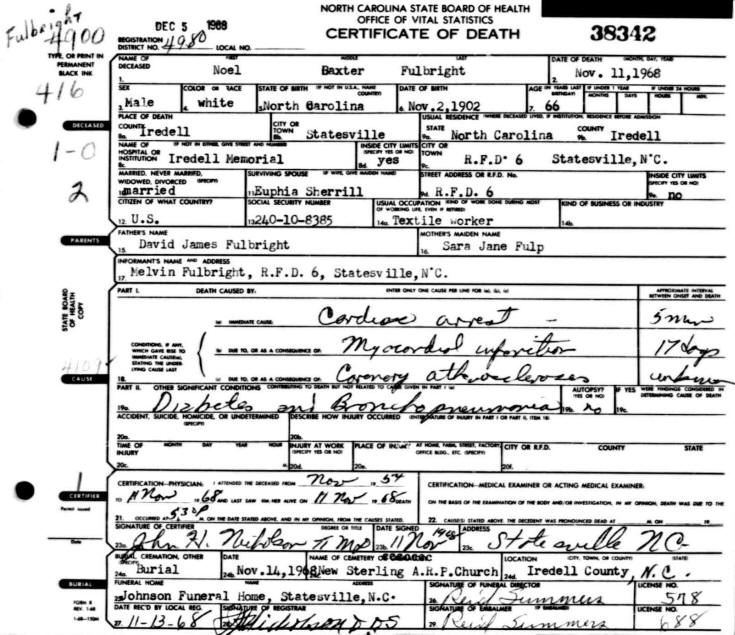 Fulbright
DEC 5 1968
NORTH CAROLINA STATE BOARD OF HEALTH
OFFICE OF VITAL STATISTICS
CERTIFICATE OF DEATH
38342
4900
REGISTRATION DISTRICT NO. 4980 LOCAL NO.
TYPE, OR PRINT IN PERMANENT BLACK INK
416
NAME OF DECEASED FIRST MIDDLE LAST
1. Noel Baxter Fulbright
DATE OF DEATH (MONTH, DAY, YEAR)
2. Nov. 11,1968
SEX
3. Male
COLOR OR RACE
4. white
STATE OF BIRTH (IF NOT IN U.S.A., NAME COUNTRY)
5. North Carolina
DATE OF BIRTH
6. Nov.2,1902
AGE (IN YEARS LAST BIRTHDAY)
7. 66
IF UNDER 1 YEAR
MONTHS DAYS
IF UNDER 24 HOURS
HOURS MIN.
DECEASED
1-0
2
PLACE OF DEATH
COUNTY
8a. Iredell
CITY OR TOWN
8b. Statesville
USUAL RESIDENCE (WHERE DECEASED LIVED, IF INSTITUTION, RESIDENCE BEFORE ADMISSION)
STATE
9a. North Carolina
COUNTY
9b. Iredell
NAME OF HOSPITAL OR INSTITUTION (IF NOT IN EITHER, GIVE STREET AND NUMBER)
8c. Iredell Memorial
INSIDE CITY LIMITS (SPECIFY YES OR NO)
8d. yes
CITY OR TOWN
9c. R.F.D. 6 Statesville,N.C.
MARRIED, NEVER MARRIED, WIDOWED, DIVORCED (SPECIFY)
10. married
SURVIVING SPOUSE (IF WIFE, GIVE MAIDEN NAME)
11. Euphia Sherrill
STREET ADDRESS OR R.F.D. No.
9d. R.F.D. 6
INSIDE CITY LIMITS (SPECIFY YES OR NO)
9e. no
CITIZEN OF WHAT COUNTRY?
12. U.S.
SOCIAL SECURITY NUMBER
13. 240-10-8385
USUAL OCCUPATION (KIND OF WORK DONE DURING MOST OF WORKING LIFE, EVEN IF RETIRED)
14a. Textile worker
KIND OF BUSINESS OR INDUSTRY
14b.
PARENTS
FATHER'S NAME
15. David James Fulbright
MOTHER'S MAIDEN NAME
16. Sara Jane Fulp
INFORMANT'S NAME AND ADDRESS
17. Melvin Fulbright, R.F.D. 6, Statesville,N.C.
STATE BOARD OF HEALTH COPY
PART I. DEATH CAUSED BY: ENTER ONLY ONE CAUSE PER LINE FOR (a), (b), (c)
APPROXIMATE INTERVAL BETWEEN ONSET AND DEATH
(a) IMMEDIATE CAUSE: Cardiac arrest - 5 min
CONDITIONS, IF ANY, WHICH GAVE RISE TO IMMEDIATE CAUSE(A) STATING THE UNDERLYING CAUSE LAST
(b) DUE TO, OR AS A CONSEQUENCE OF: Myocardial infarction 17 days
CAUSE
18. (c) DUE TO, OR AS A CONSEQUENCE OF: Coronary atherosclerosis unknown
PART II. OTHER SIGNIFICANT CONDITIONS CONTRIBUTING TO DEATH BUT NOT RELATED TO CAUSE GIVEN IN PART I (a)
19a. Diabetes and Bronchopneumonia
AUTOPSY? (YES OR NO)
19b. no
IF YES WERE FINDINGS CONSIDERED IN DETERMINING CAUSE OF DEATH
19c.
ACCIDENT, SUICIDE, HOMICIDE, OR UNDETERMINED (SPECIFY)
20a.
DESCRIBE HOW INJURY OCCURRED (ENTER NATURE OF INJURY IN PART I OR PART II, ITEM 18)
20b.
TIME OF INJURY MONTH DAY YEAR HOUR
20c.
INJURY AT WORK (SPECIFY YES OR NO)
20d.
PLACE OF INJURY AT HOME, FARM, STREET, FACTORY, OFFICE BLDG., ETC. (SPECIFY)
20e.
CITY OR R.F.D. COUNTY STATE
20f.
1
CERTIFIER
CERTIFICATION-PHYSICIAN: I ATTENDED THE DECEASED FROM Nov 1954
TO 11 Nov 1968 AND LAST SAW HIM/HER ALIVE ON 11 Nov 1968 DEATH
21. OCCURRED AT 530P M. ON THE DATE STATED ABOVE, AND IN MY OPINION, FROM THE CAUSES STATED.
CERTIFICATION-MEDICAL EXAMINER OR ACTING MEDICAL EXAMINER:
ON THE BASIS OF THE EXAMINATION OF THE BODY AND/OR INVESTIGATION, IN MY OPINION, DEATH WAS DUE TO THE
22. CAUSE(S) STATED ABOVE. THE DECEDENT WAS PRONOUNCED DEAD AT M. ON 19
Permit issued
Date
SIGNATURE OF CERTIFIER DEGREE OR TITLE
23a. John H. Nicholson MD
DATE SIGNED
23b. 11 Nov 1968
ADDRESS
23c. Statesville NC
BURIAL, CREMATION, OTHER (SPECIFY)
24a. Burial
DATE
24b. Nov.14,1968
NAME OF CEMETERY
24c. New Sterling A.R.P.Church
LOCATION CITY, TOWN, OR COUNTY) (STATE)
24d. Iredell County, N.C.
BURIAL
FORM 8
REV. 1-68
FUNERAL HOME NAME ADDRESS
25. Johnson Funeral Home, Statesville,N.C.
SIGNATURE OF FUNERAL DIRECTOR
26. Reid Summers
LICENSE NO.
578
DATE REC'D BY LOCAL REG.
27. 11-13-68
SIGNATURE OF REGISTRAR
28.
SIGNATURE OF EMBALMER (IF EMBALMED)
29. Reid Summers
LICENSE NO.
688